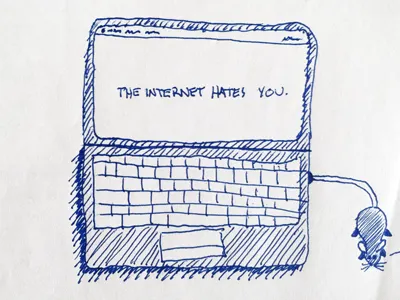 THE INTERNET HATES YOU.